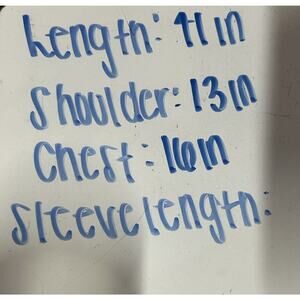 Length: 41in
Shoulder: 13in
Chest: 16in
Sleeve length: